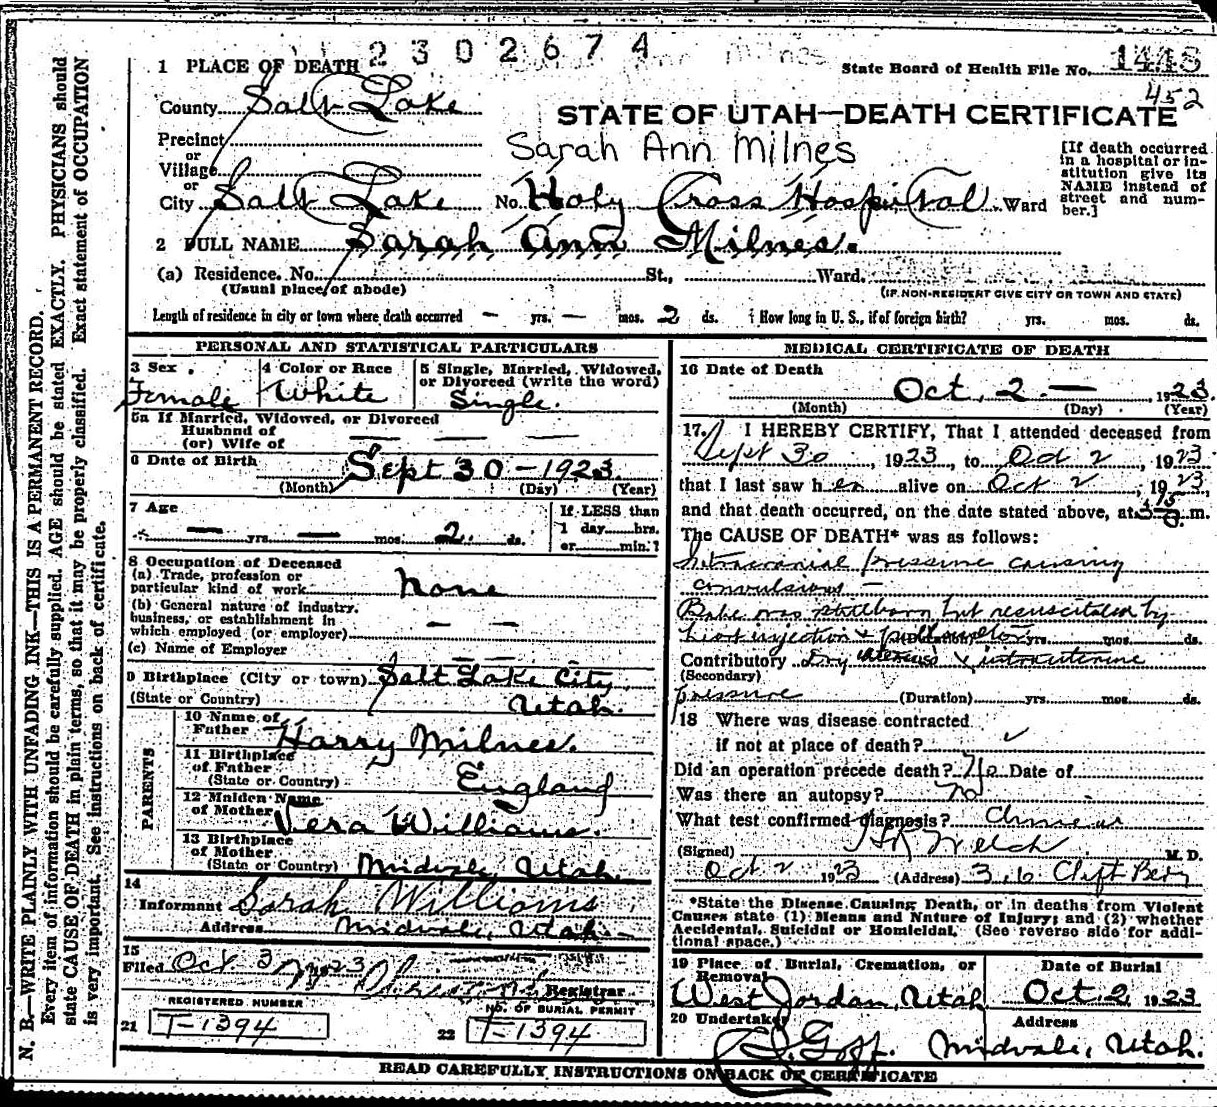 2302674 Milnes
1 PLACE OF DEATH
State Board of Health File No. 1448
452
County Salt Lake
STATE OF UTAH—DEATH CERTIFICATE
Precinct
Sarah Ann Milnes
or
Village
or
City Salt Lake No. Holy Cross Hospital Ward
[If death occurred
in a hospital or in-
stitution give its
NAME instead of
street and num-
ber.]
2 FULL NAME Sarah Ann Milnes.
(a) Residence. No. St., Ward.
(Usual place of abode)
(IF NON-RESIDENT GIVE CITY OR TOWN AND STATE)
Length of residence in city or town where death occurred — yrs. — mos. 2 ds. How long in U. S., if of foreign birth? yrs. mos. ds.
PERSONAL AND STATISTICAL PARTICULARS
3 Sex
Female
4 Color or Race
White
5 Single, Married, Widowed,
or Divorced (write the word)
Single.
5a If Married, Widowed, or Divorced
Husband of
(or) Wife of — — —
6 Date of Birth Sept 30 - 1923
(Month) (Day) (Year)
7 Age
— yrs. — mos. 2 ds.
If LESS than
1 day hrs.
or min.?
8 Occupation of Deceased
(a) Trade, profession or
particular kind of work None
(b) General nature of industry,
business, or establishment in
which employed (or employer) — —
(c) Name of Employer — —
9 Birthplace (City or town) Salt Lake City,
(State or Country) Utah.
PARENTS
10 Name of
Father Harry Milnes.
11 Birthplace
of Father
(State or Country) England
12 Maiden Name
of Mother Vera Williams.
13 Birthplace
of Mother
(State or Country) Midvale, Utah.
14
Informant Sarah Williams
Address Midvale, Utah-
15
Filed Oct. 3 1923
Registrar
REGISTERED NUMBER
NO. OF BURIAL PERMIT
21 T-1394
22 T-1394
MEDICAL CERTIFICATE OF DEATH
16 Date of Death
Oct. 2 — 1923.
(Month) (Day) (Year)
17. I HEREBY CERTIFY, That I attended deceased from
Sept 30, 1923, to Oct 2, 1923,
that I last saw her alive on Oct 2, 1923,
and that death occurred, on the date stated above, at m.
The CAUSE OF DEATH* was as follows:
Intracranial pressure causing
convulsions —
Babe was stillborn but resuscitated by
heart injection & pulmotor yrs. mos. ds.
Contributory Dry & intrauterine
(Secondary)
pressure (Duration) yrs. mos. ds.
18 Where was disease contracted
if not at place of death?
Did an operation precede death? No Date of
Was there an autopsy? no
What test confirmed diagnosis?
(Signed) Welch M. D.
Oct 2 1923 (Address) Clift Bldg
*State the Disease Causing Death, or in deaths from Violent
Causes state (1) Means and Nature of Injury; and (2) whether
Accidental, Suicidal or Homicidal. (See reverse side for addi-
tional space.)
19 Place of Burial, Cremation, or
Removal
West Jordan, Utah
Date of Burial
Oct. 2, 1923
20 Undertaker
Goff.
Address
Midvale, Utah.
READ CAREFULLY INSTRUCTIONS ON BACK OF CERTIFICATE
N. B.—WRITE PLAINLY WITH UNFADING INK—THIS IS A PERMANENT RECORD.
Every item of information should be carefully supplied. AGE should be stated EXACTLY. PHYSICIANS should
state CAUSE OF DEATH in plain terms, so that it may be properly classified. Exact statement of OCCUPATION
is very important. See instructions on back of certificate.